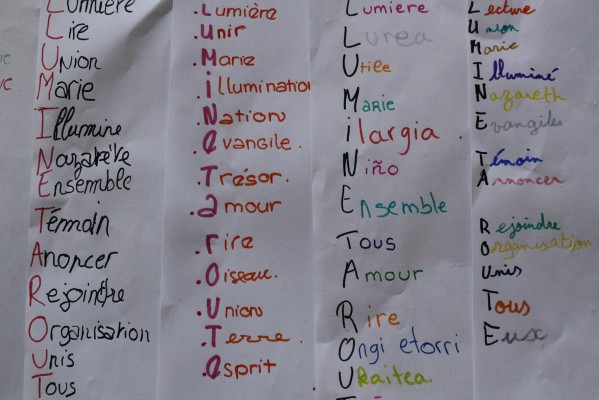 Lumière
Lire
Union
Marie
Illumine
Nazareve
Ensemble
Témoin
Anoncer
Rejoindre
Organisation
Unis
Tous
.Lumière
.Unir
.Marie
.illumination
.Nation
.evangile.
.Trésor.
.amour
.rire
.Oiseau.
.Union
.Terre.
.esprit
Lumiere
Lurea
Utile
Marie
ilargia.
Niño
Ensemble
Tous
Amour
Rire
Ongi etorri
Ukaitea
Lecture
Union
Marie
Illuminé
Nazareth
Evangiles
Témoin
Annoncer
Rejoindre
Organisation
Unis
Tous
Eux